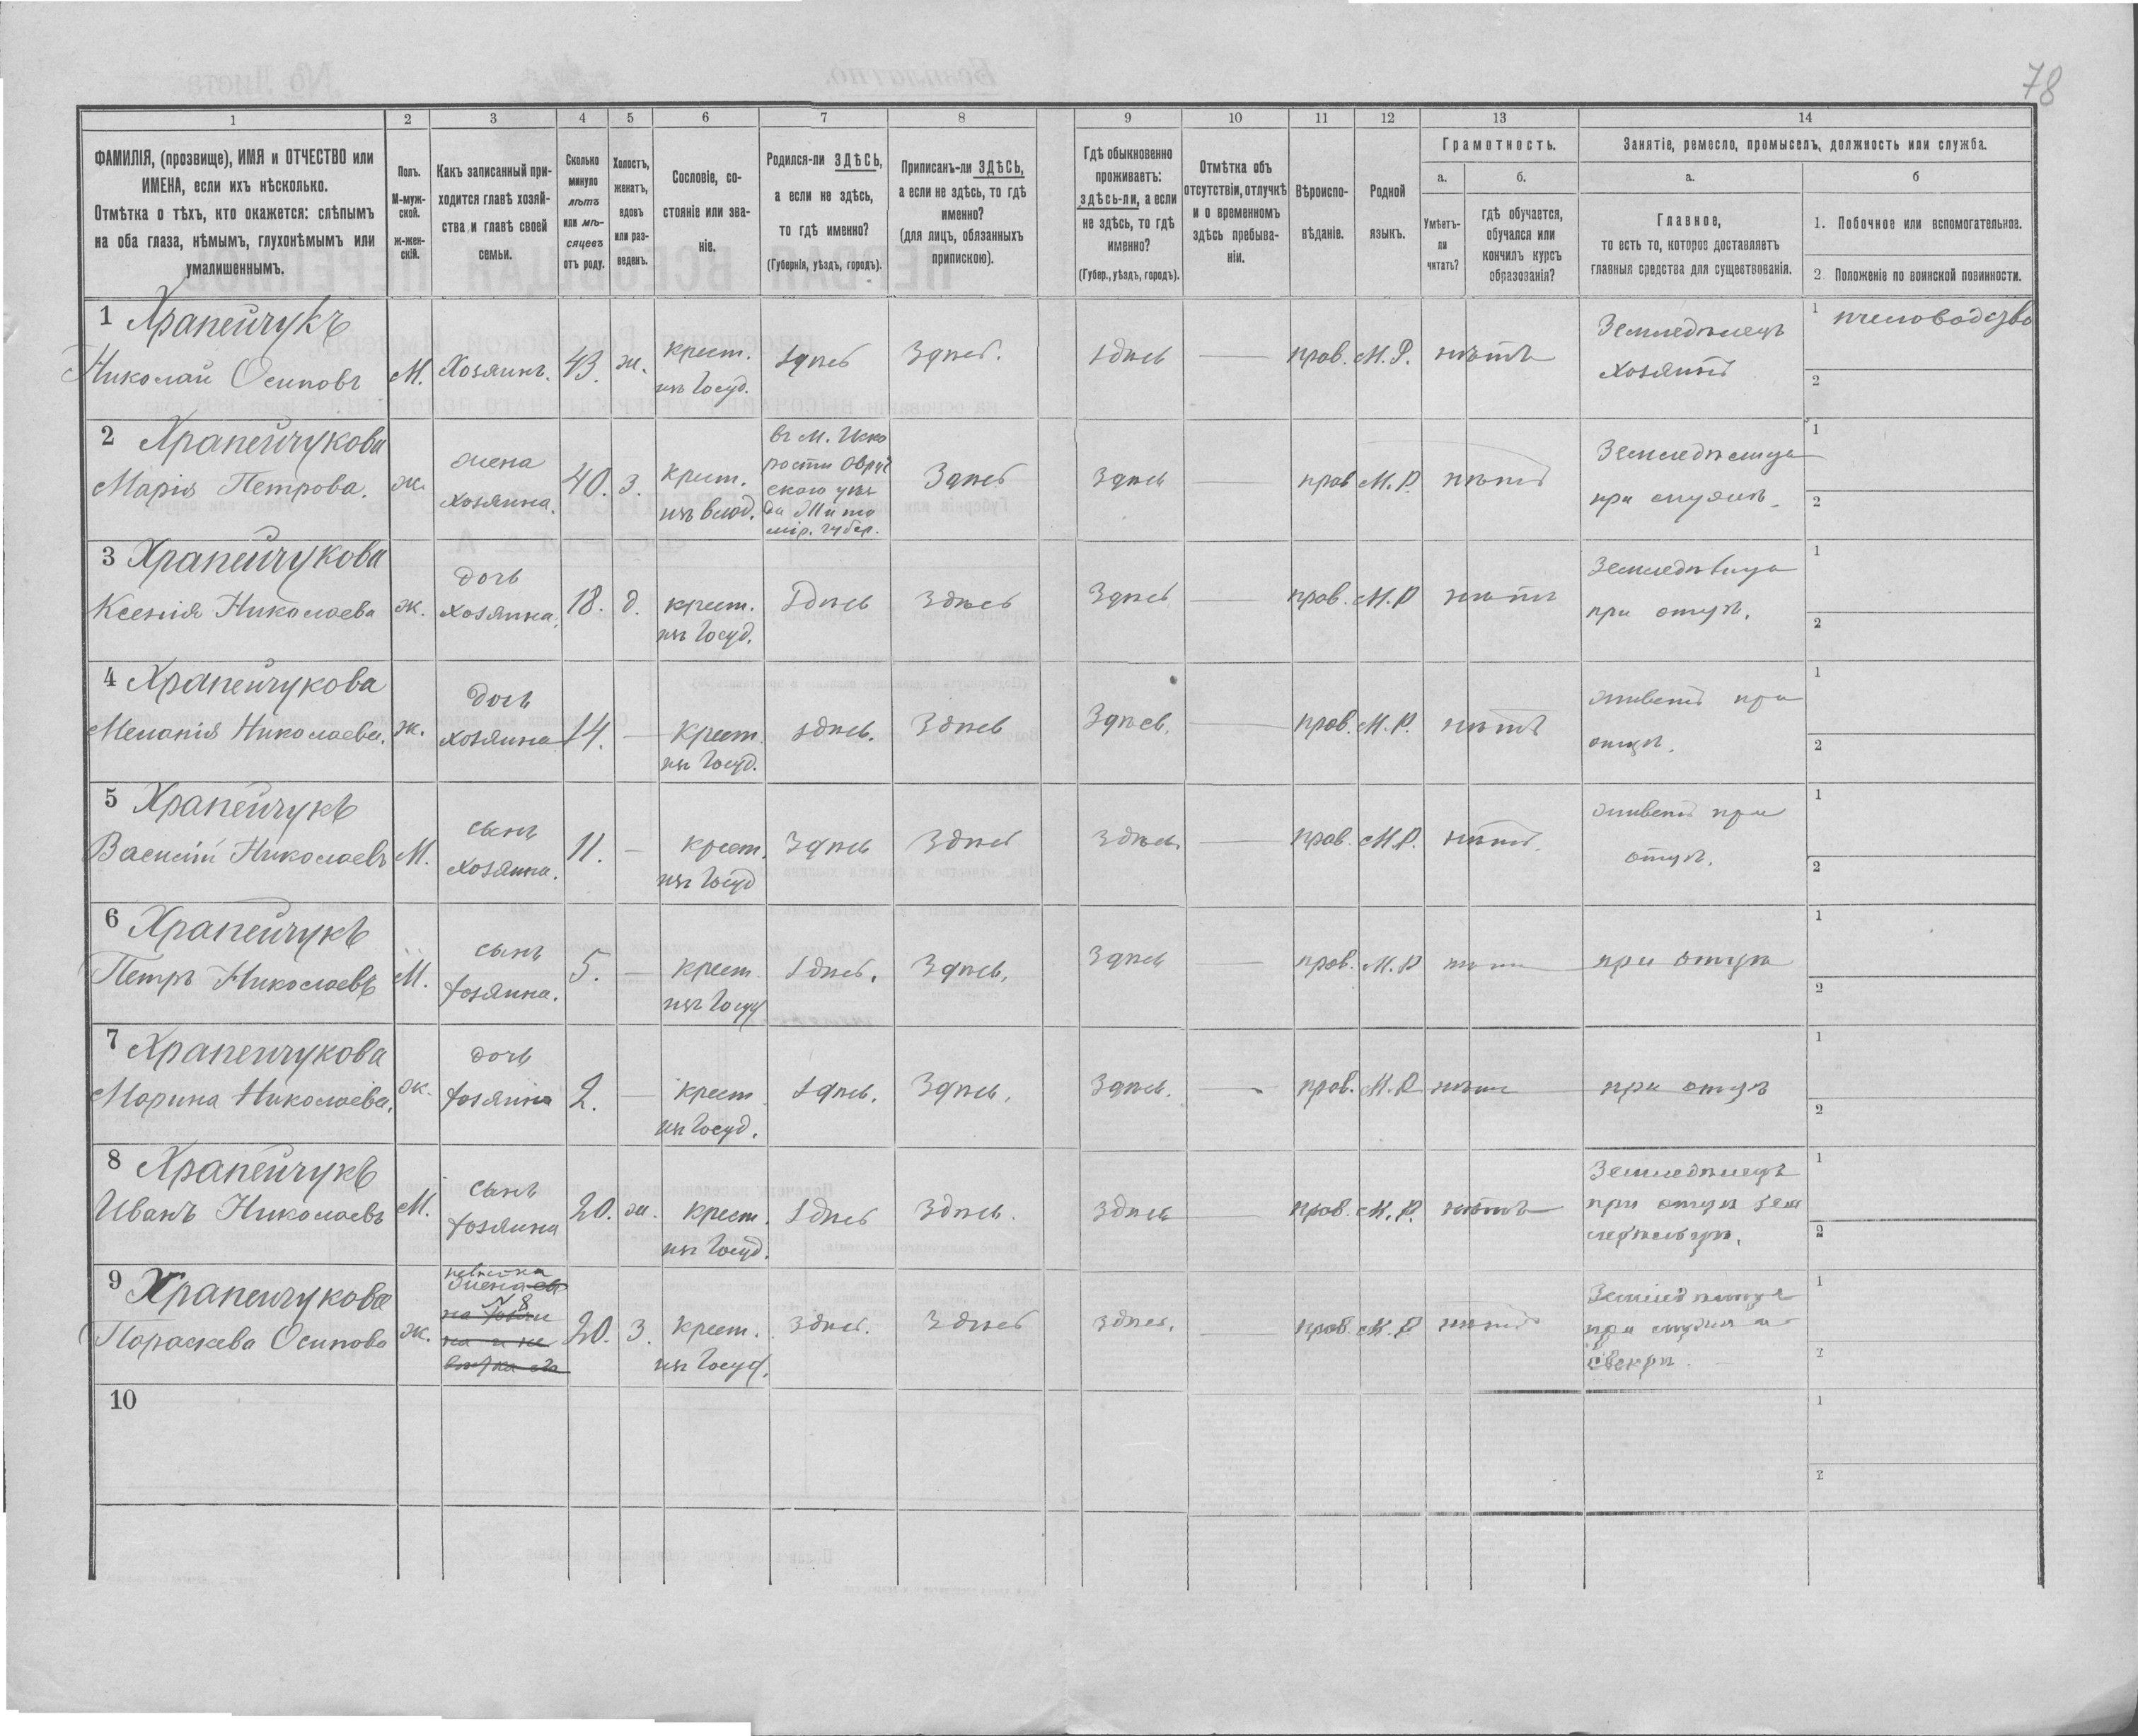 78
1 2 3 4 5 6 7 8 9 10 11 12 13 14
ФАМИЛІЯ, (прозвище), ИМЯ и ОТЧЕСТВО или
ИМЕНА, если ихъ нѣсколько.
Отмѣтка о тѣхъ, кто окажется: слѣпымъ
на оба глаза, нѣмымъ, глухонѣмымъ или
умалишеннымъ.
Полъ.
М-муж-
ской.
ж-жен-
скій.
Какъ записанный при-
ходится главѣ хозяй-
ства и главѣ своей
семьи.
Сколько
минуло
лѣтъ
или мѣ-
сяцевъ
отъ роду.
Холостъ,
женатъ,
вдовъ
или раз-
веденъ.
Сословіе, со-
стояніе или зва-
ніе.
Родился-ли ЗДѢСЬ,
а если не здѣсь,
то гдѣ именно?
(Губернія, уѣздъ, городъ).
Приписанъ-ли ЗДѢСЬ,
а если не здѣсь, то гдѣ
именно?
(для лицъ, обязанныхъ
припискою).
Гдѣ обыкновенно
проживаетъ:
здѣсь-ли, а если
не здѣсь, то гдѣ
именно?
(Губер., уѣздъ, городъ).
Отмѣтка объ
отсутствіи, отлучкѣ
и о временномъ
здѣсь пребыва-
ніи.
Вѣроиспо-
вѣданіе.
Родной
языкъ.
Грамотность.
а.
Умѣетъ-
ли
читать?
б.
гдѣ обучается,
обучался или
кончилъ курсъ
образованія?
Занятіе, ремесло, промыселъ, должность или служба.
а.
Главное,
то есть то, которое доставляетъ
главныя средства для существованія.
б
1. Побочное или вспомогательное.
2 Положеніе по воинской повинности.
1 Храпейчукъ
Николай Осиповъ
М.
Хозяинъ.
43.
ж.
крест.
изъ Госуд.
Здѣсь
Здѣсь.
Здѣсь
прав.
М. Р.
нѣтъ
Земледѣлецъ
хозяинъ
1 пчеловодство
2
2 Храпейчукова
Марія Петрова.
ж.
жена
хозяина.
40.
з.
крест.
изъ влад.
въ м. Иско
рости Овруч
скаго уѣз
да Жито
мір. губер.
Здѣсь
Здѣсь
прав
М. Р.
нѣтъ
Земледѣлица
при мужѣ.
1
2
3 Храпейчукова
Ксенія Николаева
ж.
дочь
хозяина.
18.
д.
крест.
изъ Госуд.
Здѣсь
Здѣсь
Здѣсь
прав.
М. Р
нѣтъ
Земледѣлица
при отцѣ.
1
2
4 Храпейчукова
Меланія Николаева.
ж.
дочь
хозяина
14.
Крест.
изъ Госуд.
Здѣсь.
Здѣсь
Здѣсь.
прав.
М. Р.
нѣтъ
живетъ при
отцѣ.
1
2
5 Храпейчукъ
Василій Николаевъ
М.
сынъ
хозяина.
11.
крест.
изъ Госуд
Здѣсь
Здѣсь
Здѣсь.
прав.
М. Р.
нѣтъ.
живетъ при
отцѣ.
1
2
6 Храпейчукъ
Петръ Николаевъ
М.
сынъ
хозяина.
5.
крест.
изъ Госуд
Здѣсь.
Здѣсь.
Здѣсь
прав.
М. Р
нѣтъ
при отцѣ
1
2
7 Храпейчукова
Марина Николаева.
ж.
дочь
хозяина
2.
крест.
изъ Госуд.
Здѣсь.
Здѣсь.
Здѣсь.
прав.
М. Р
нѣтъ
при отцѣ
1
2
8 Храпейчукъ
Иванъ Николаевъ
М.
сынъ
хозяина
20.
ж.
крест.
изъ Госуд.
Здѣсь
Здѣсь.
Здѣсь
прав.
М. Р.
нѣтъ
Земледѣлецъ
при отцѣ зем
ледѣльцѣ.
1
2
9 Храпейчукова
Параскева Осипова
ж.
невѣстка
жена
№ 8
20.
З.
крест.
изъ Госуд.
Здѣсь.
Здѣсь
Здѣсь.
прав.
М. Р
нѣтъ
Земледѣлица
при мужѣ и
свекрѣ.
1
2
10
1
2